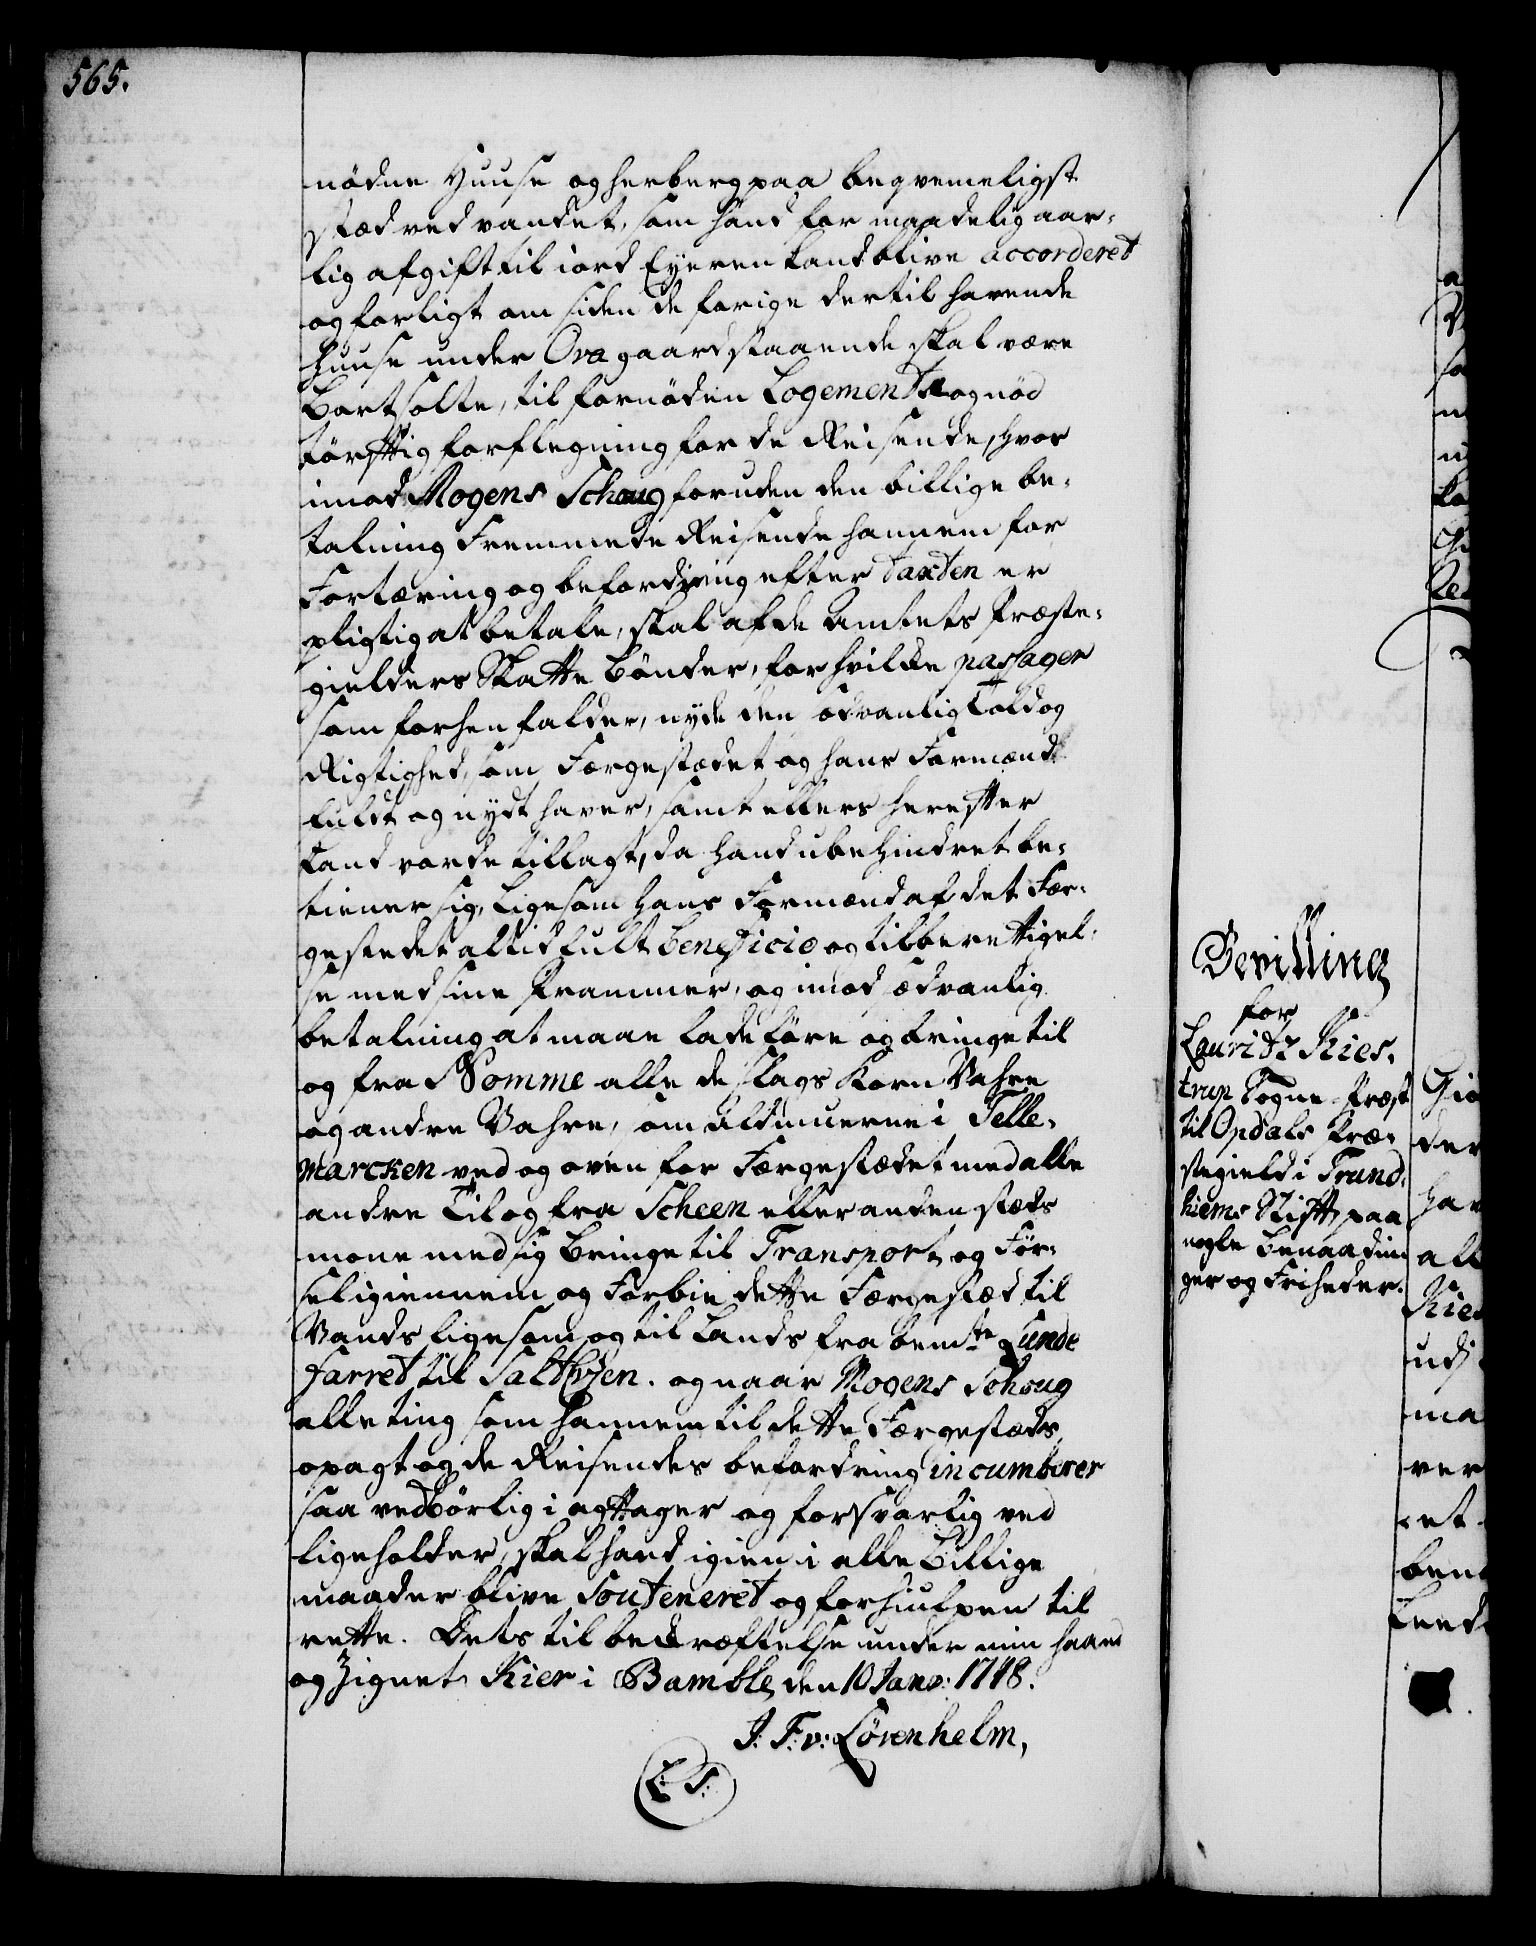 565.
nödne Huuse og herberg paa beqvemeligst
stæd ved vandet, som hand for maadelig aar-
lig afgift til jord Eyeren kand blive accorderet
og forligt om siden de forige dertil havende
huuse under Ora gaard staaende skal være
Bortsolte, til fornöden Logemente og nöd
törfftig forflegning for de Reisende, hvor
imod Mogens Schoug foruden den billige be-
talning Fremmede Reisende hannem for
Fortæring og befordring efter taxten er
pligtig at betale, skal af de Amtets Præste-
gielders Skatte bönder, for hvilcke passager
som forhen falder, nyde den ædvanlig Told og
Rigtighed, som Færgestædet og hans Formænd
fuldt og nydt haver, samt ellers herefter
kand vorde tillagt, da hand ubehindret be-
tiener sig, ligesom hans Formænd af det Fær-
gestedet altid fult beneficio og tilberettigel-
se med sine Prammer, og imod ædvanlig
betalning at maae lade före og bringe til
og fra Nomme alle de slags Korn Vahre
og andre Vahre, som Almuerne i Telle-
marcken ved og oven for Færgestædet med alle
andre Til og fra Scheen eller anden stæds
mone med sig bringe til Transport og För-
sel igiennem og Forbie dette Færgestæd til
Vands ligesom og til Lands fra bemte Lunde
Farret til Saltboen. og naar Mogens Schoug
alle ting som hannem til dette Færgestæds
opagt og de Reisendes befordring incumberer
saa vedbörlig i agttager og forsvarlig ved
ligeholder, skal hand igien i alle Billige
maader blive Souteneret og forhiulpen til
rette. Dets til bedkræftelse under min haand
og Zignet Kier i Bamble den 10 Janv: 1748.
J: F: v: Lövenhelm,
L: S:
Bevilling
for
Lauridz Kies,
trup Sogne-Præst
til Opdals Præ-
stegield i Trund-
hiems Stift paa
nogle Benaadin-
ger og Friheder.